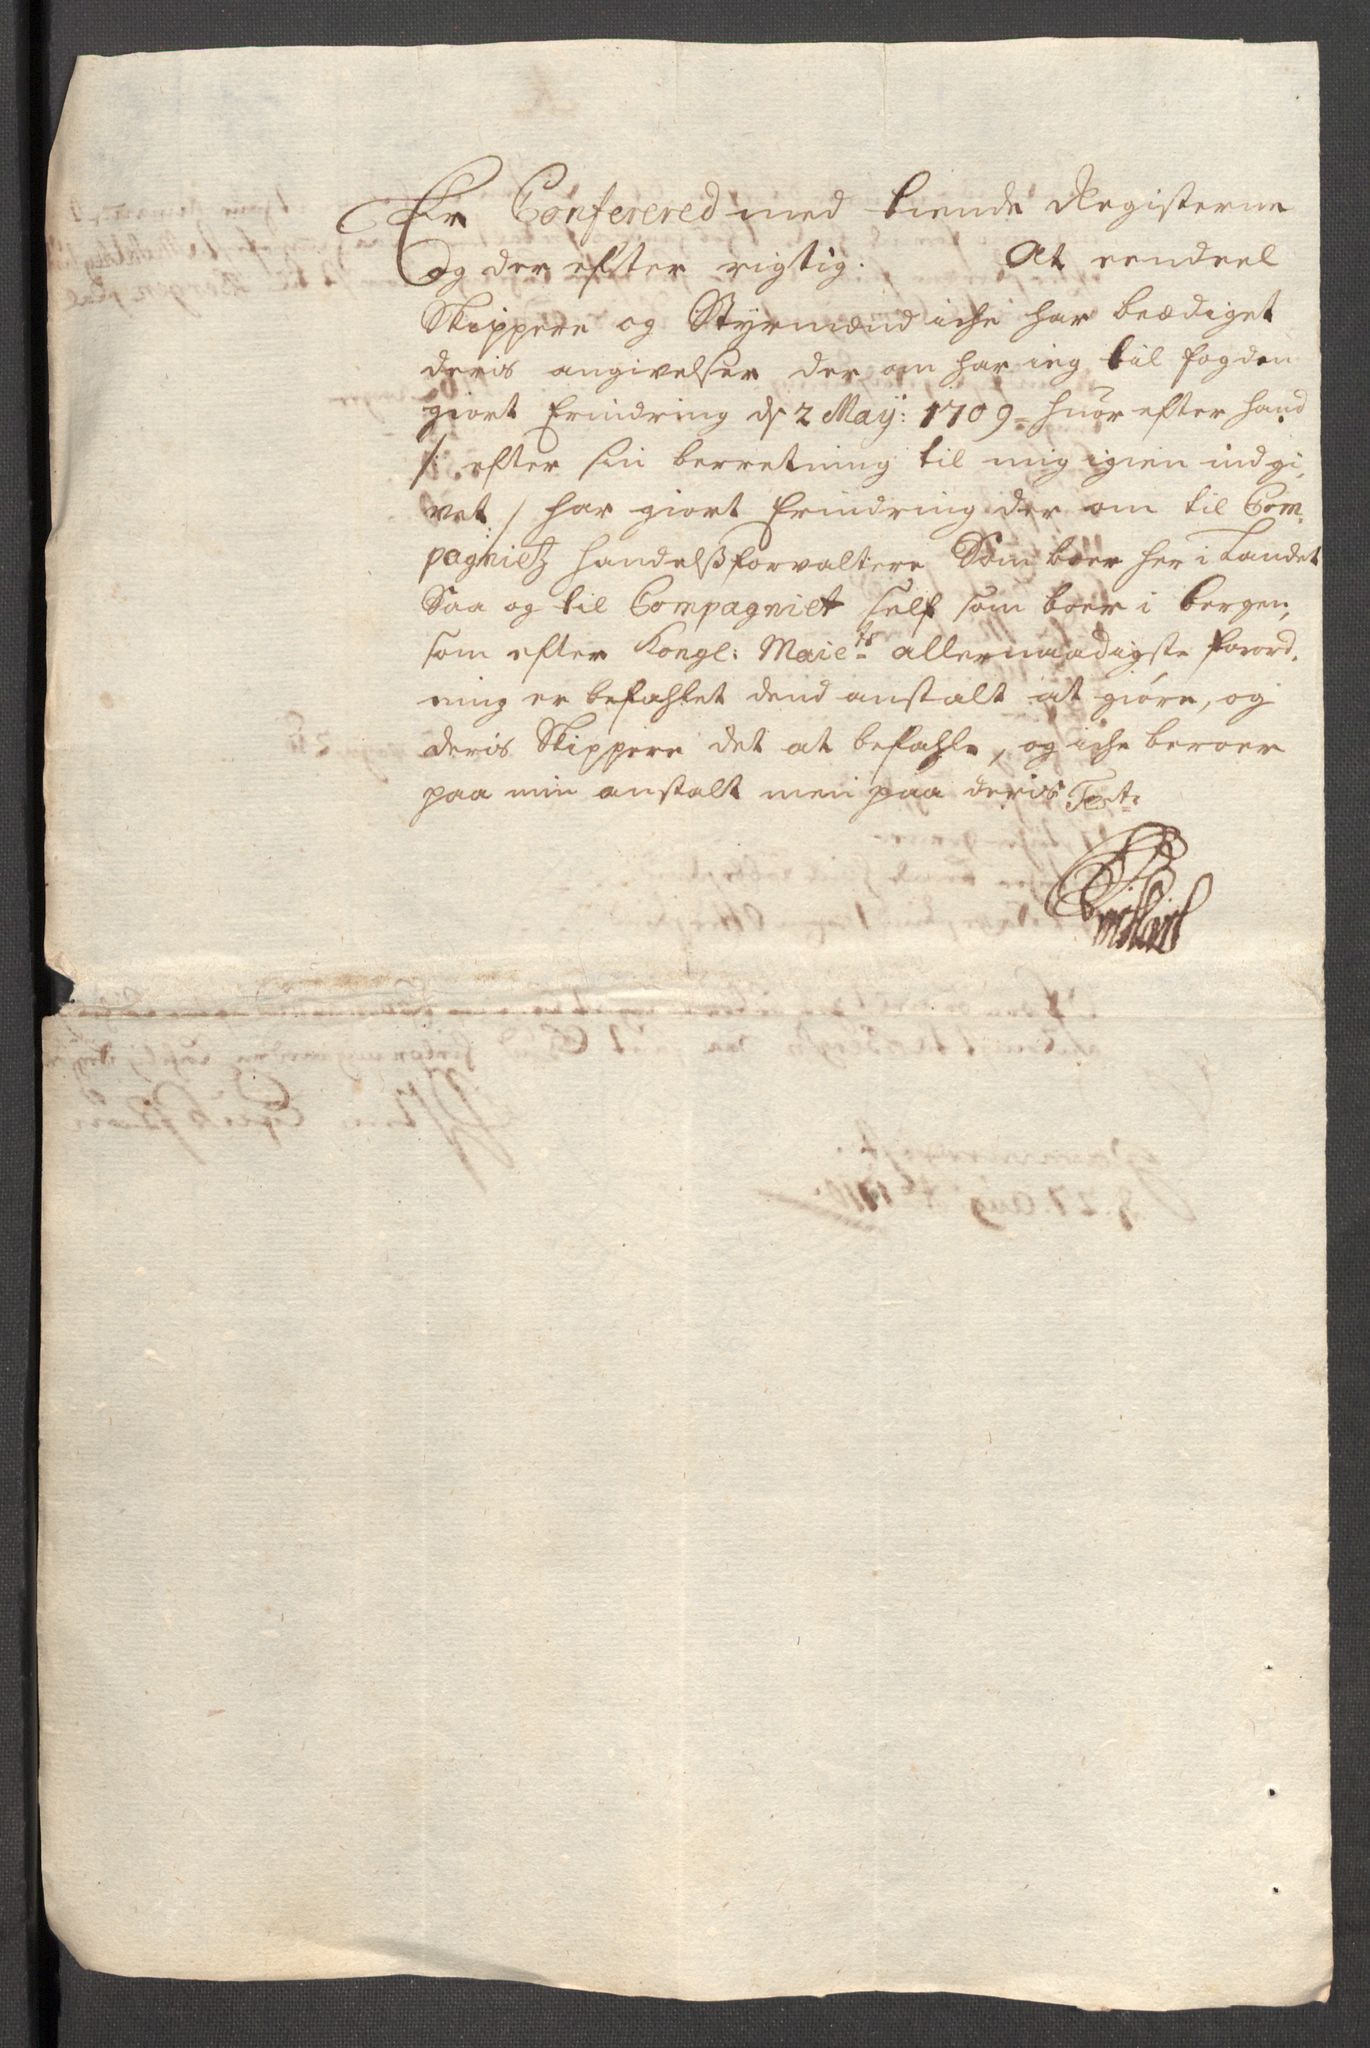 Er Conferered med tiende Registerne
Og der efter rigtig. At eendeel
Skippere og Styrmænd iche har beædiget
deris angivelser der om har ieg til fogden
giort Erindring d. 2 May: 1709 huor efter hand
/: efter sin berretning til mig igien indgi,
vet / har giort Erindring der om til Com,
pagnietz handelsforvaltere Som boer her i Landet
Saa og til Compagniet self som boer i bergen,
som efter Kongl: Maiets allernaadigste forord,
ning er befahlet dend anstalt at giöre, og
deris Skippere det at befahle, og iche beroer
paa min anstalt men paa deris Test: